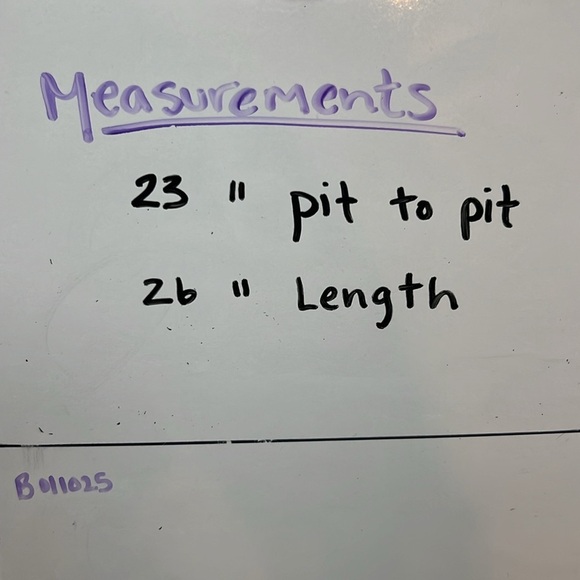 Measurements
23 " pit to pit
26 " Length
B011025